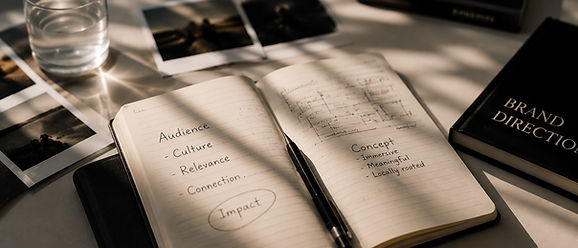 Audience
- Culture
- Relevance
- Connection
Impact
Concept
- Immersive
- Meaningful
- Locally rooted
BRAND
DIRECTION